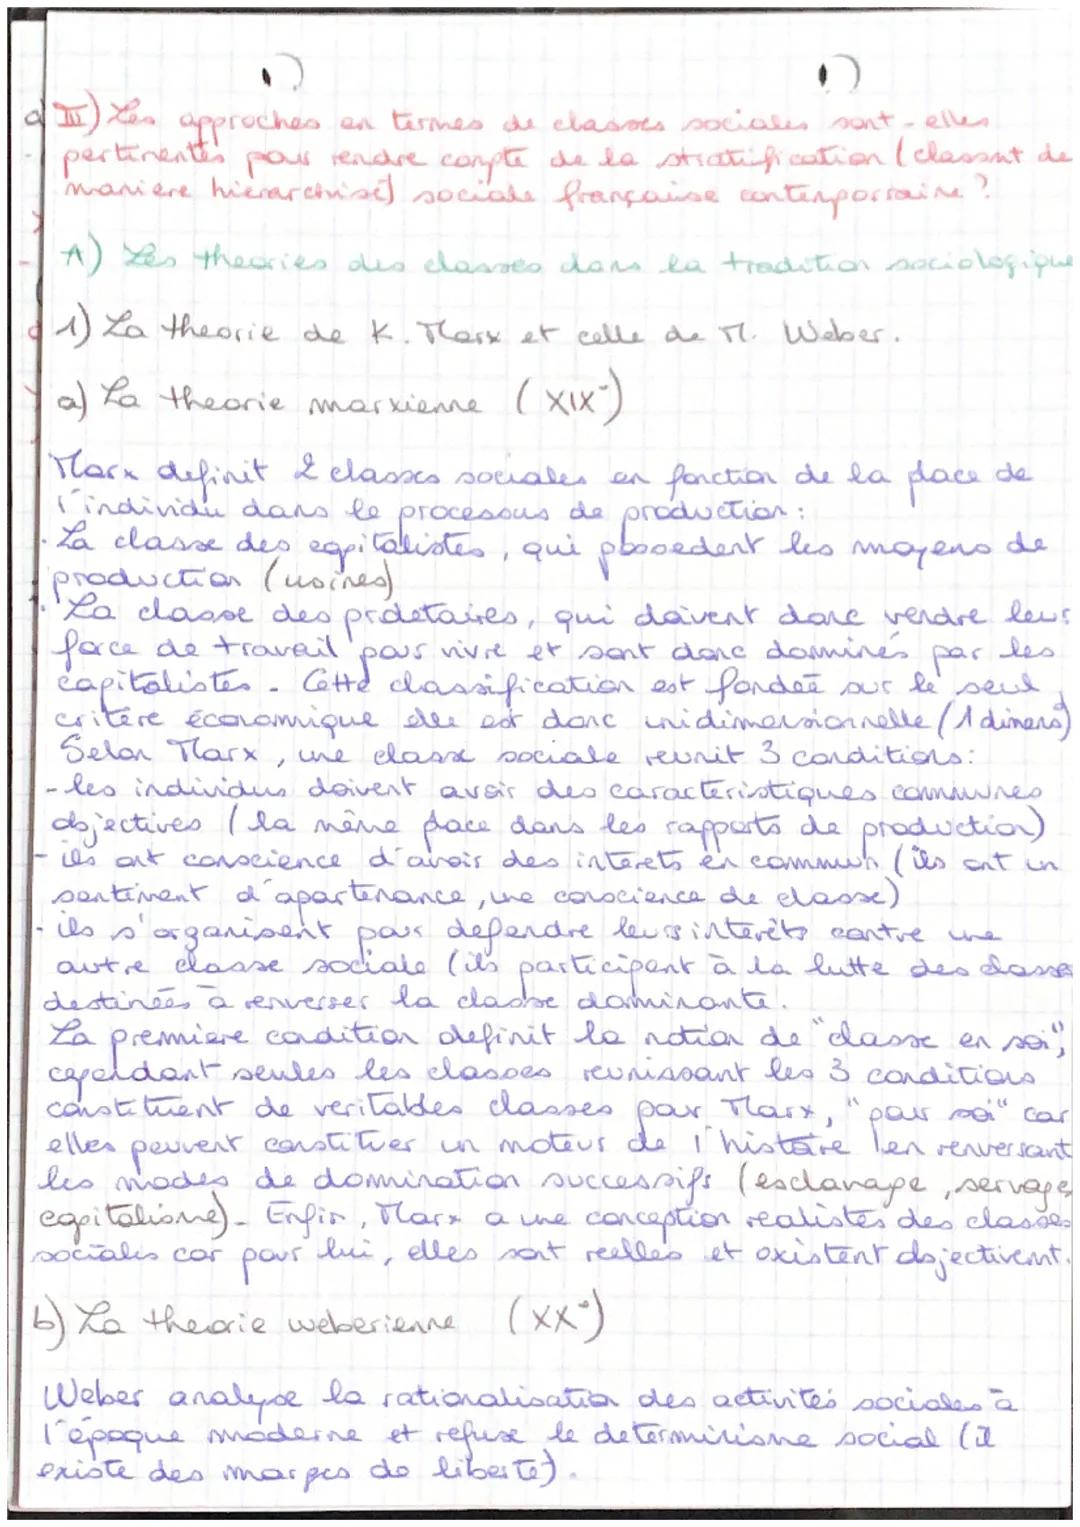 III) Les approches en termes de classes sociales sont-elles
pertinentes pour rendre compte de la stratification (classent de
manière hierarchisé) sociale française contemporraine ?
A) Les theories des classes dans la tradition sociologique
1) La theorie de K. Marx et celle de M. Weber.
a) La theorie marxienne (XIX°)
Marx definit 2 classes sociales en fonction de la place de
l'individu dans le processus de production :
· La classe des capitalistes, qui possedent les moyens de
production (usines)
· La classe des proletaires, qui doivent donc vendre leur
force de travail pour vivre et sont donc dominés par les
capitalistes. Cette classification est fondée sur le seul
critère économique elle est donc unidimensionnelle (1 dimens)
Selon Marx, une classe sociale reunit 3 conditions :
- les individus doivent avoir des caractéristiques communes
objectives (la même place dans les rapports de production)
- ils ont conscience d'avoir des intérets en commun (ils ont un
sentiment d'apartenance, une conscience de classe)
- ils s'organisent pour defendre leurs intérêts contre une
autre classe sociale (ils participent à la lutte des classes
destinées à renverser la classe dominante.
La premiere condition definit la notion de "classe en soi",
cependant seules les classes reunissant les 3 conditions
constituent de veritables classes pour Marx, "pour soi" car
elles peuvent constituer un moteur de l'histoire (en renversant
les modes de domination successifs (esclavage, servage,
capitalisme). Enfin, Marx a une conception realistes des classes
sociales car pour lui, elles sont reelles et existent objectivement.
b) La theorie weberienne (XX°)
Weber analyse la rationalisation des activités sociales à
l'époque moderne et refuse le determinisme social (il
existe des marges de liberté).